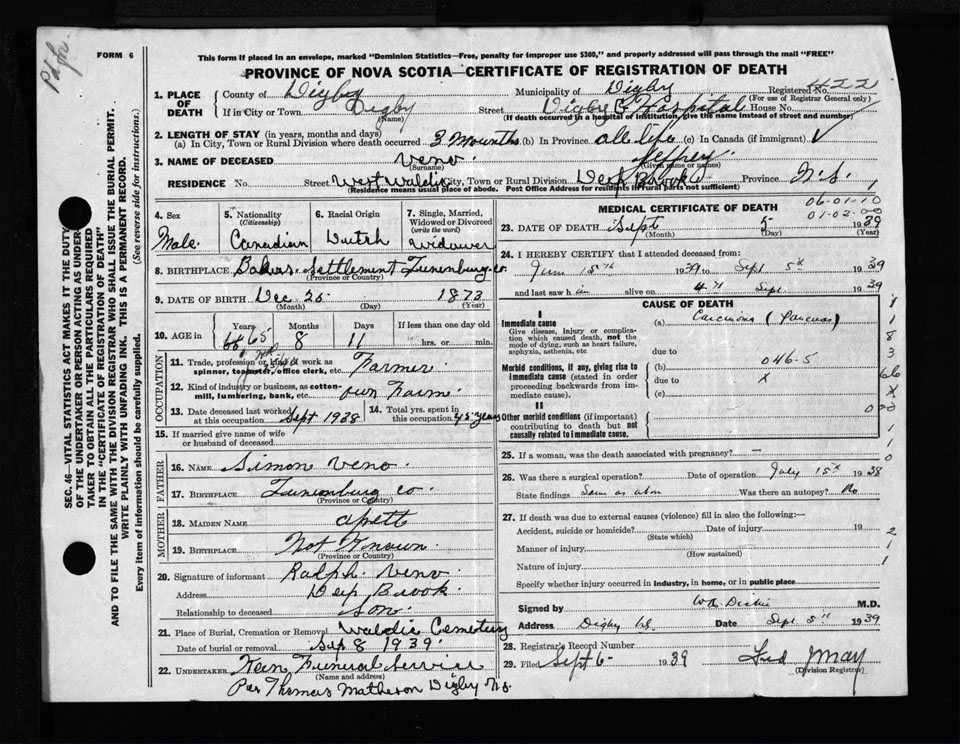 FORM 6
This form if placed in an envelope, marked "Dominion Statistics—Free, penalty for improper use $300," and properly addressed will pass through the mail "FREE"
PROVINCE OF NOVA SCOTIA—CERTIFICATE OF REGISTRATION OF DEATH
1. PLACE OF DEATH
County of Digby Municipality of Digby Registered No. 422
(For use of Registrar General only)
If in City or Town Digby Street Digby G Hospital House No.
(Name) (If death occurred in a hospital or institution, give the name instead of street and number)
2. LENGTH OF STAY (in years, months and days)
(a) In City, Town or Rural Division where death occurred 3 Mounths (b) In Province all life (c) In Canada (if immigrant)
3. NAME OF DECEASED Veno. Jeffrey.
(Surname) (Given name or names)
RESIDENCE No. Street West Waldic City, Town or Rural Division Deep Brook Province N.S.
(Residence means usual place of abode. Post Office Address for residents in rural parts not sufficient)
4. Sex
Male.
5. Nationality
(Citizenship)
Canadian
6. Racial Origin
Dutch
7. Single, Married, Widowed or Divorced
(write the word)
Widower
8. BIRTHPLACE Bakers. Settlement Lunenburg. co.
(Province or Country)
9. DATE OF BIRTH Dec. 25. 1873
(Month) (Day) (Year)
10. AGE in
Years Months Days If less than one day old
65 8 11 hrs. or min.
OCCUPATION
11. Trade, profession or kind of work as spinner, teamster, office clerk, etc. Farmer
12. Kind of industry or business, as cotton-mill, lumbering, bank, etc. own Farm
13. Date deceased last worked at this occupation Sept 1938
14. Total yrs. spent in this occupation 45 years
15. If married give name of wife or husband of deceased
FATHER
16. NAME Simon Veno.
17. BIRTHPLACE Lunenburg co.
(Province or Country)
MOTHER
18. MAIDEN NAME
19. BIRTHPLACE Not Known.
(Province or Country)
20. Signature of informant Ralph. Veno.
Address Deep Brook
Relationship to deceased Son.
21. Place of Burial, Cremation or Removal Waldic Cemetery
Date of burial or removal Sep 8 1939.
22. UNDERTAKER Funeral Service
(Name and address)
Per Thomas Matheson Digby N.S.
MEDICAL CERTIFICATE OF DEATH
06-01-10
01-02-00
23. DATE OF DEATH Sept 5 1939
(Month) (Day) (Year)
24. I HEREBY CERTIFY that I attended deceased from:
June 15th 1939 to Sept 5th 1939
and last saw h im alive on 4th Sept. 1939
CAUSE OF DEATH
I
Immediate cause
Give disease, injury or complication which caused death, not the mode of dying, such as heart failure, asphyxia, asthenia, etc
(a) Carcinoma (Pancreas)
due to
Morbid conditions, if any, giving rise to immediate cause (stated in order proceeding backwards from immediate cause).
(b) 046-5
due to X
(c)
II
Other morbid conditions (if important) contributing to death but not causally related to immediate cause.
25. If a woman, was the death associated with pregnancy? —
26. Was there a surgical operation? Date of operation July 15th 1938
State findings Same as above Was there an autopsy? No
27. If death was due to external causes (violence) fill in also the following:—
Accident, suicide or homicide? Date of injury 19
(State which)
Manner of injury
(How sustained)
Nature of injury
Specify whether injury occurred in industry, in home, or in public place
Signed by M.D.
Address Digby N.S. Date Sept. 5th 1939
28. Registrar's Record Number
29. Filed Sept 6 - 1939 Fred May
(Division Registrar)
SEC. 46—VITAL STATISTICS ACT MAKES IT THE DUTY
OF THE UNDERTAKER OR PERSON ACTING AS UNDER-
TAKER TO OBTAIN ALL THE PARTICULARS REQUIRED
IN THE "CERTIFICATE OF REGISTRATION OF DEATH"
AND TO FILE THE SAME WITH THE DIVISION REGISTRAR WHO SHALL ISSUE THE BURIAL PERMIT.
WRITE PLAINLY WITH UNFADING INK. THIS IS A PERMANENT RECORD.
Every item of information should be carefully supplied. (See reverse side for instructions.)